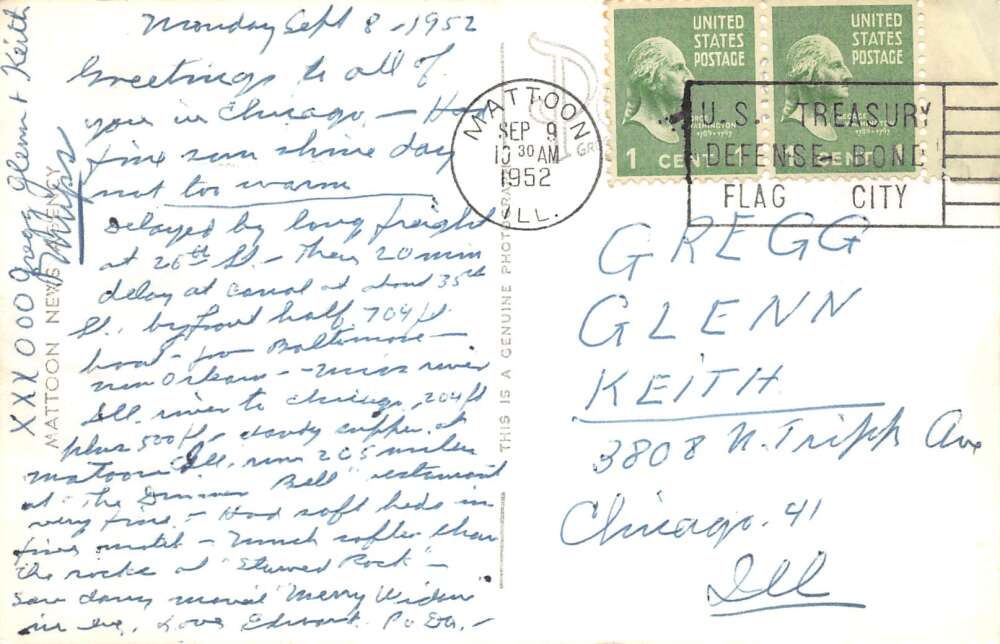 Monday Sept 8, 1952
Greetings to all of
you in Chicago - Had
fine sun shine day
not too warm
Delayed by long freight
at 26th St. - Then 20 min
delay at Canal at about 35th
St., by front half 704 ft
boat - from Baltimore -
New Orleans - - Miss river
Ill. river to Chicago, 204 ft
plus 500 ft, - dandy supper at
Matoon Ill. run 205 miles
at "The Dinner Bell" restaurant
very fine. - Had soft beds in
fine motel - much softer than
the rocks at "Starved Rock" -
Saw dandy movie "Merry Widow"
in eve. Love Edward.
XXX OOO Gregg Glenn + Keith
MATTOON NEWS AGENCY
THIS IS A GENUINE PHOTOGRAPH
MATTOON
SEP 9
10 30 AM
1952
ILL.
UNITED
STATES
POSTAGE
GEORGE
WASHINGTON
1789-1797
1 CENT 1
UNITED
STATES
POSTAGE
GEORGE
WASHINGTON
1789-1797
1 CENT 1
U.S. TREASURY
DEFENSE BOND
FLAG CITY
GREGG
GLENN
KEITH
3808 N. Tripp Ave
Chicago. 41
Ill